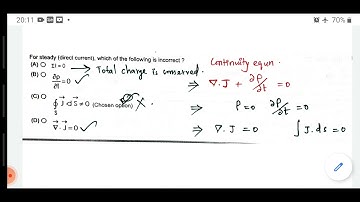 20:11
For steady (direct current), which of the following is incorrect ?
(A) ΣI = 0 → Total charge is conserved.
(B) ∂ρ/∂t = 0 ✓
(C) ∮S J⃗.dS⃗ ≠ 0 (Chosen option) ✗.
(D) ∇⃗.J⃗ = 0 ✓
Continuity equn.
⇒ ∇.J + ∂ρ/∂t = 0
⇒ ρ=0 ∂ρ/∂t = 0
⇒ ∇.J = 0 ∫J.ds = 0